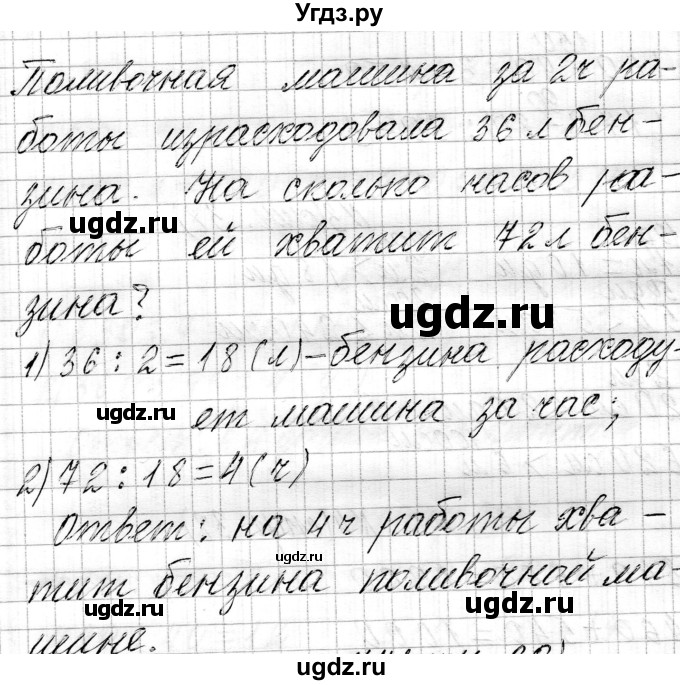 Угдз.ру
Поливочная машина за 2ч ра-
боты израсходовала 36 л бен-
зина. На сколько часов ра-
ugdz.ru
боты ей хватит 72 л бен-
зина?
ugdz.ru
1) 36 : 2 = 18 (л) – бензина расходу-
ugdz.ru
ет машина за час;
2) 72 : 18 = 4 (ч)
Ответ: на 4 ч работы хва-
ugdz.ru
тит бензина поливочной ма-
ugdz.ru
ugdz.ru
шине.
ugdz.ru